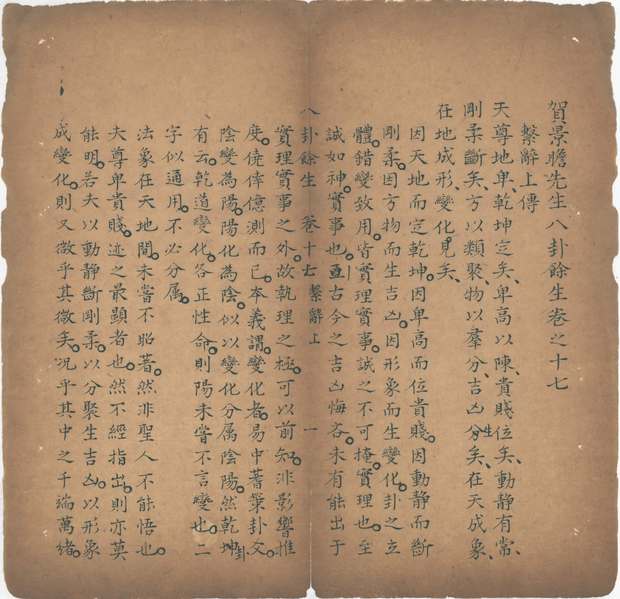 賀景瞻先生八卦餘生卷之十七
繫辭上傳
天尊地卑、乾坤定矣、卑高以陳、貴賤位矣、動靜有常、
剛柔斷矣、方以類聚、物以羣分、吉凶生矣、在天成象、
在地成形、變化見矣、
因天地而定乾坤。因卑高而位貴賤。因動靜而斷
剛柔。因方物而生吉凶。因形象而生變化。卦之立
體。錯變致用。皆實理實事。誠之不可掩。實理也。至
誠如神。實事也。亘古今之吉凶悔吝。未有能出于
八卦餘生 卷十七 繫辭上 一
實理實事之外。故執理之極。可以前知。非影響推
度。僥倖億測而已。本義謂。變化者。易中蓍策卦爻。
陰變為陽。陽化為陰。似以變化分屬陰陽。然乾卦
有云。乾道變化。各正性命。則陽未嘗不言變也。二
字似通用。不必分属。
法象在天地間。未嘗不昭著。然非聖人不能悟也。
夫尊卑貴賤。迹之最顯者也。然不經指出。則亦莫
能明。若夫以動靜斷剛柔。以分聚生吉凶。以形象
成變化。則又微乎其微矣。况乎其中之千端萬緒。